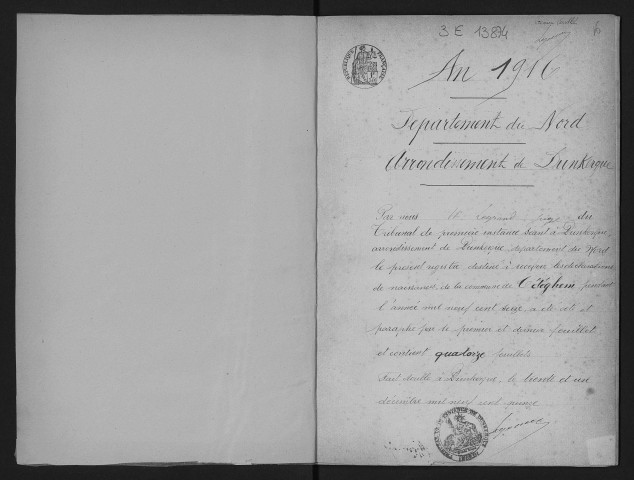 3 E 13874
RÉPUBLIQUE FRANÇAISE
An 1916
Département du Nord
Arrondissement de Dunkerque
Par nous Legrand juge du
Tribunal de première instance séant à Dunkerque,
arrondissement de Dunkerque, département du Nord
le présent registre destiné à recevoir les déclarations
de naissances de la commune de Téghem pendant
l'année mil neuf cent seize a été coté et
paraphé par le premier et dernier feuillet
et contient quatorze feuillets
Fait double à Dunkerque, le trente et un
décembre mil neuf cent quinze